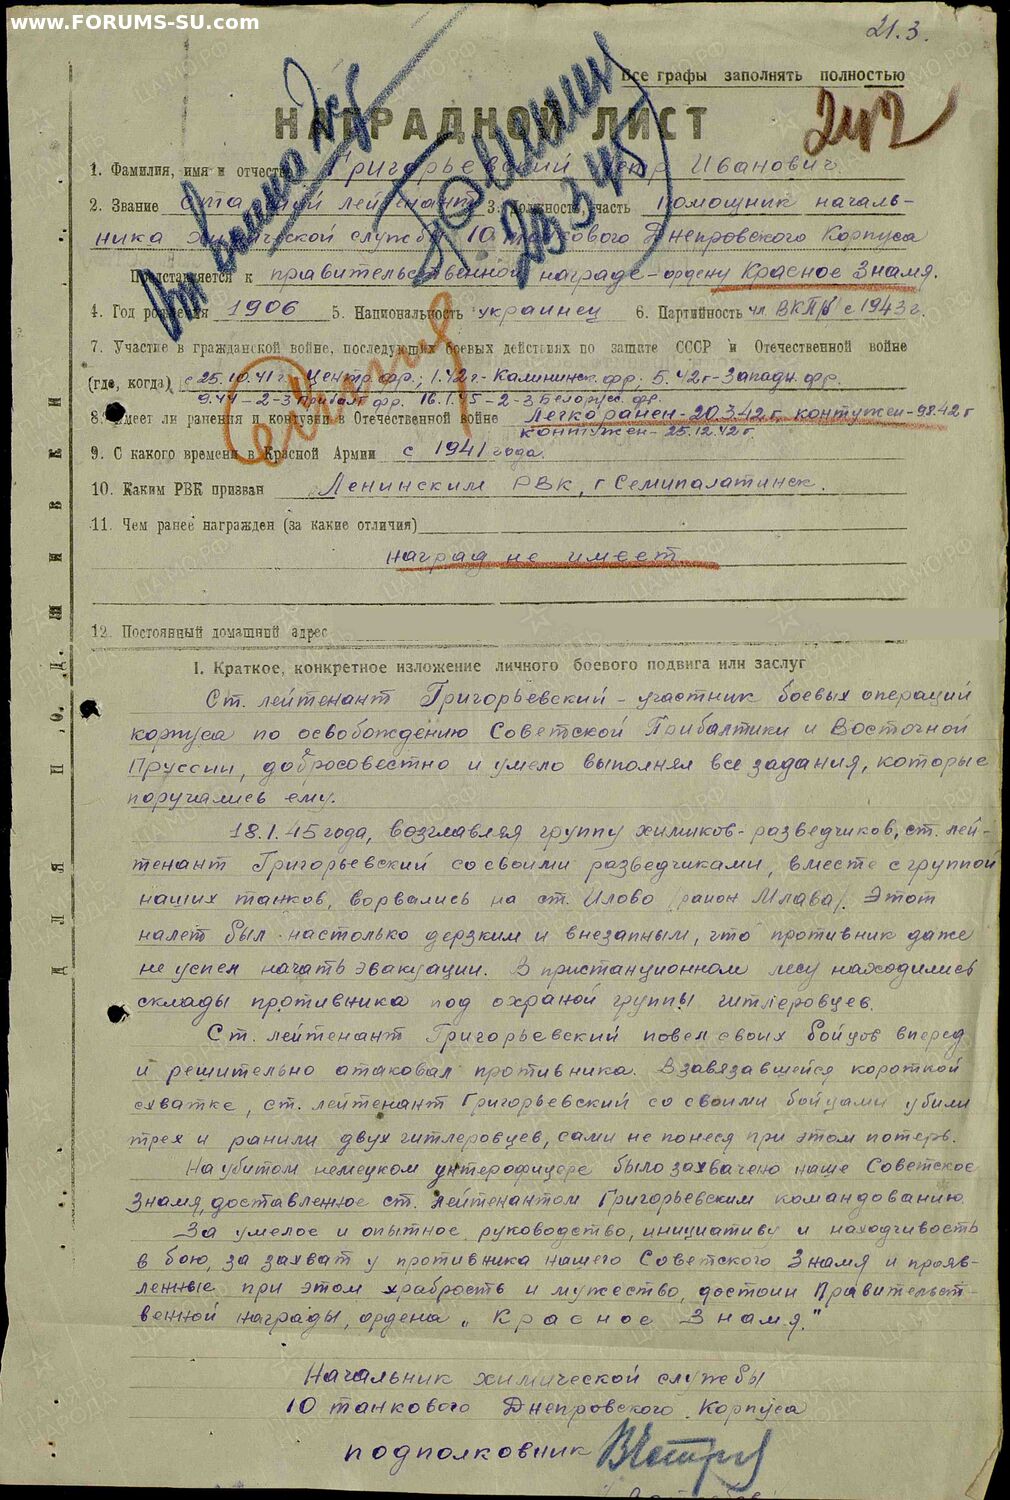 www.FORUMS-SU.com
21.3.
Все графы заполнять полностью
НАГРАДНОЙ ЛИСТ
1. Фамилия, имя и отчество Григорьевский Петр Иванович
2. Звание Старший лейтенант 3. Должность, часть помощник началь-
ника химической службы 10 танкового Днепровского Корпуса
Представляется к правительственной награде - ордену Красное Знамя.
4. Год рождения 1906 5. Национальность украинец 6. Партийность чл. ВКП/б с 1943 г.
7. Участие в гражданской войне, последующих боевых действиях по защите СССР и Отечественной войне
(где, когда) с 25.10.41 г. Центр. фр.; 1.42 г - Калининск. фр; 5.42 г - Западн. фр.
9.44 - 2-3 Прибалт фр. 16.1.45 - 2-3 Белорусс. фр.
8. Имеет ли ранения и контузии в Отечественной войне Легко ранен - 20.3.42 г, контужен - 9.8.42 г
контужен - 25.12.42 г.
9. С какого времени в Красной Армии с 1941 года.
10. Каким РВК призван Ленинским РВК, г Семипалатинск.
11. Чем ранее награжден (за какие отличия)
наград не имеет
12. Постоянный домашний адрес
I. Краткое, конкретное изложение личного боевого подвига или заслуг
Ст. лейтенант Григорьевский - участник боевых операций
корпуса по освобождению Советской Прибалтики и Восточной
Пруссии, добросовестно и умело выполнял все задания, которые
поручались ему.
18.1.45 года, возглавляя группу химиков-разведчиков, ст. лей-
тенант Григорьевский со своими разведчиками, вместе с группой
наших танков, ворвались на ст. Илово /район Млава/. Этот
налет был настолько дерзким и внезапным, что противник даже
не успел начать эвакуации. В пристанционном лесу находились
склады противника под охраной группы гитлеровцев.
Ст. лейтенант Григорьевский повел своих бойцов вперед
и решительно атаковал противника. В завязавшейся короткой
схватке, ст. лейтенант Григорьевский со своими бойцами убили
трех и ранили двух гитлеровцев, сами не понеся при этом потерь.
На убитом немецком унтерофицере было захвачено наше Советское
Знамя, доставленное ст. лейтенантом Григорьевским командованию.
За умелое и опытное руководство, инициативу и находчивость
в бою, за захват у противника нашего Советского Знамя и прояв-
ленные при этом храбрость и мужество, достоин Правительст-
венной награды, ордена „Красное Знамя."
Начальник химической службы
10 танкового Днепровского Корпуса
подполковник